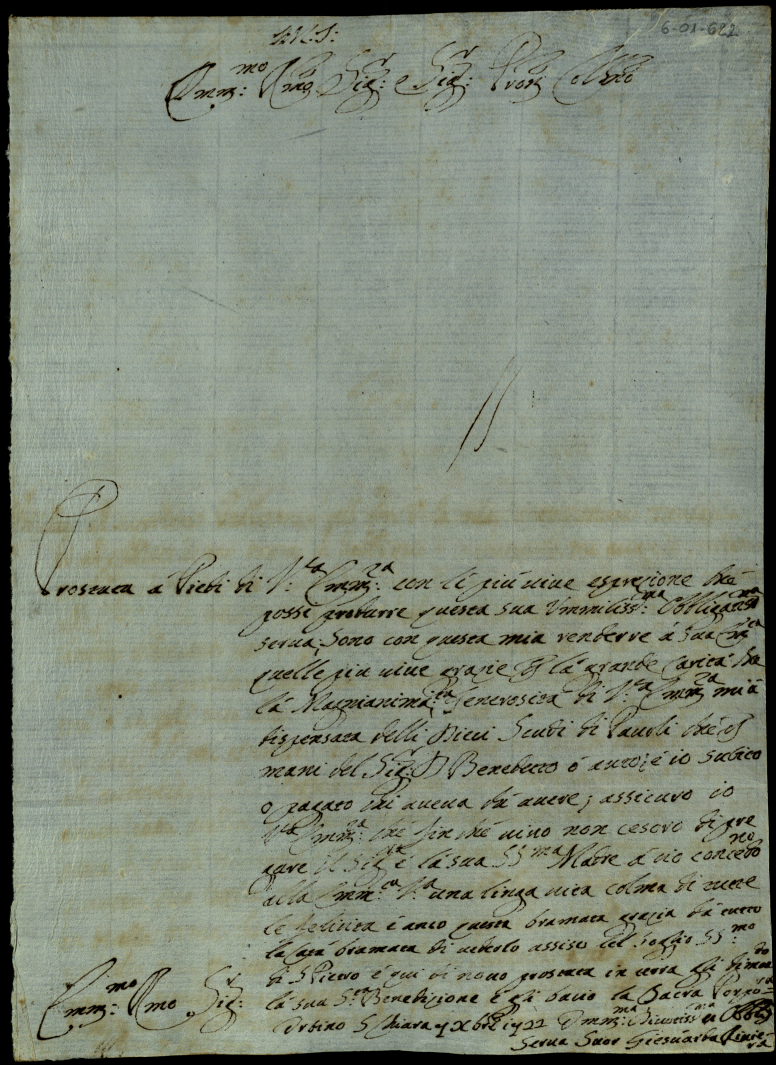 6-01-622
Emm:mo Rmo Sig:r e Sig:r Pron Collmo
Prostrata á Piedi di V:ra Emm:za con le piú uiue espresione ché
posse produrre questa sua Vmmiliss:ma Obbligatisma
serua; Sono con questa mia renderre á sua
quelle piu uiue grazie la grande Carita ha
lá Magnianima Generosita di V:ra Emm:za mi á
dispensata delli Dieci Scudi di Pauoli ché
mani del Sig:r D Benedetto ó auto; é io subito
o pagato chi aueua dá auere; assicuro io
V:ra Emm:za ché fin ché uiuo non cesero di pre
gare il Sig:r é lá sua SS:ma Madre á cio concedino
alla Emm:za V:ra una linga uita colma di uere
le felicita é anco questa bramata grazia dá tutto
la Casa bramata di uederlo assiso nel soglio SS:mo
di S Pietro é qui di nouo prostrata in terra gli dimando
lá sua S:ta Benedizione é gli bacio la Sacra Porpora
Emm:mo Rmo Sig:r
Urbino S Chiara 4 Xbre 1722
Serua Suor